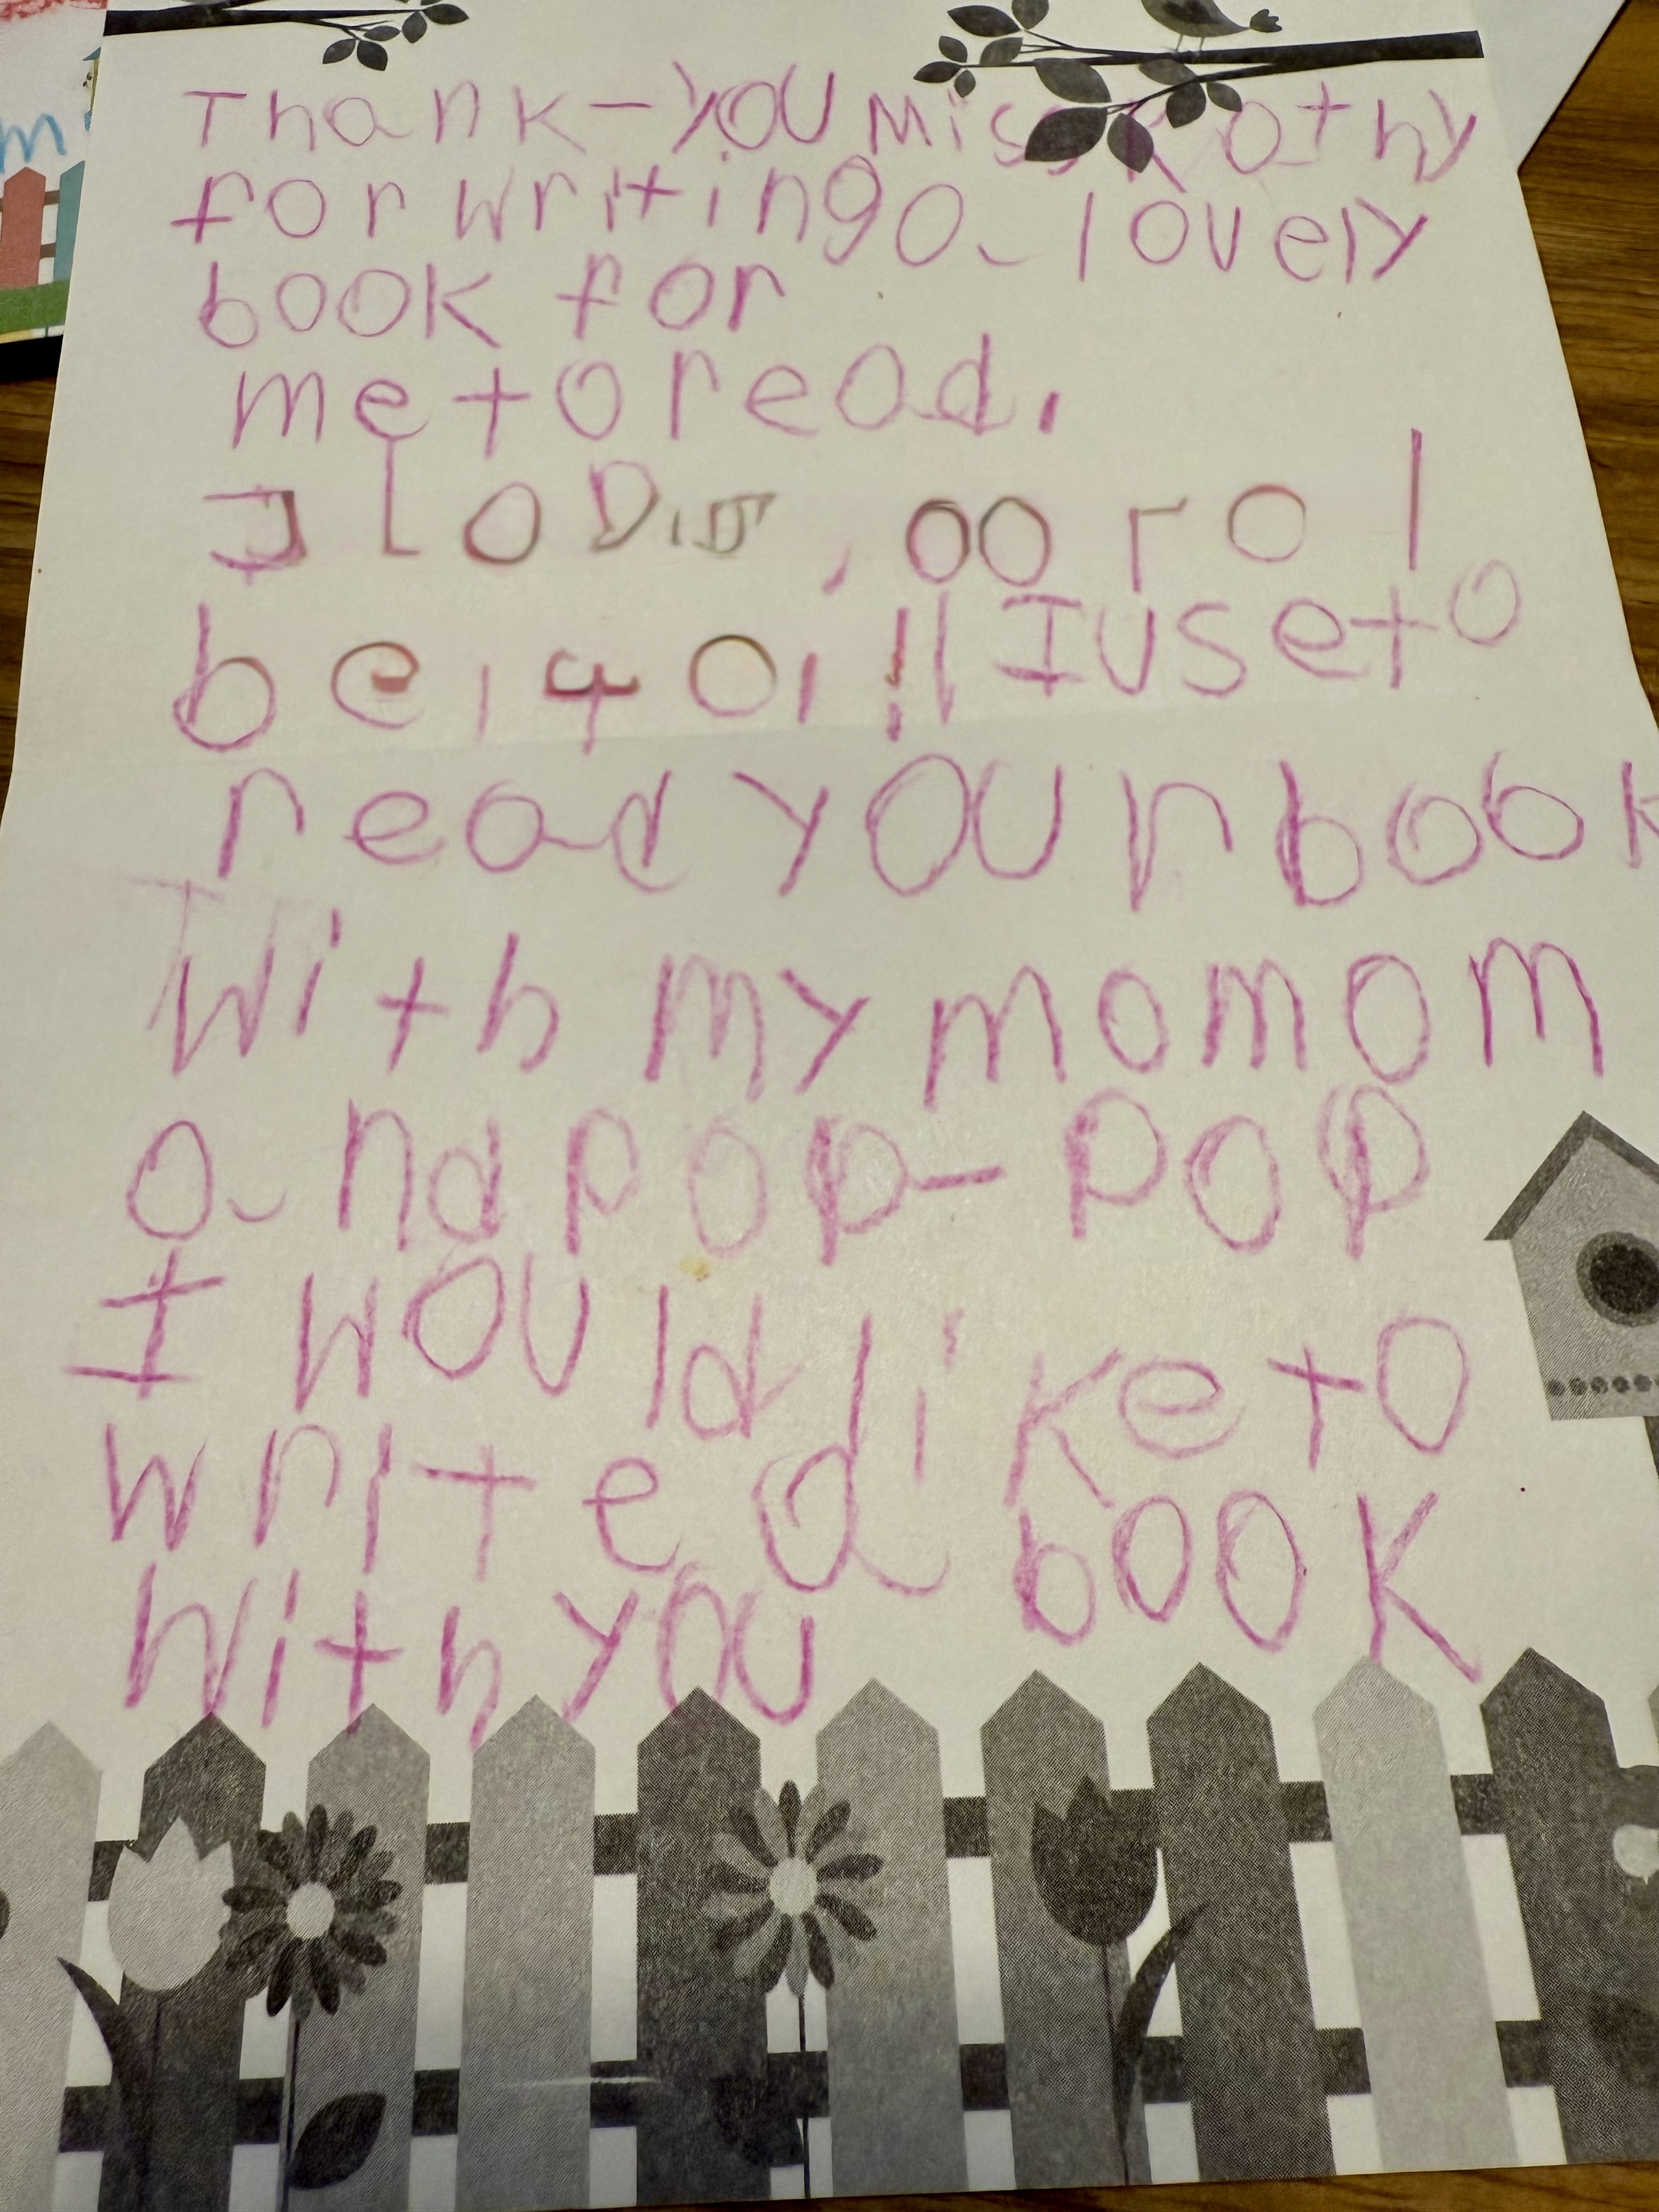 Thank-you Miss Kathy
for writing a lovely
book for
me to read.
I use to
read your book
with my momom
and pop-pop
I would like to
write a book
with you